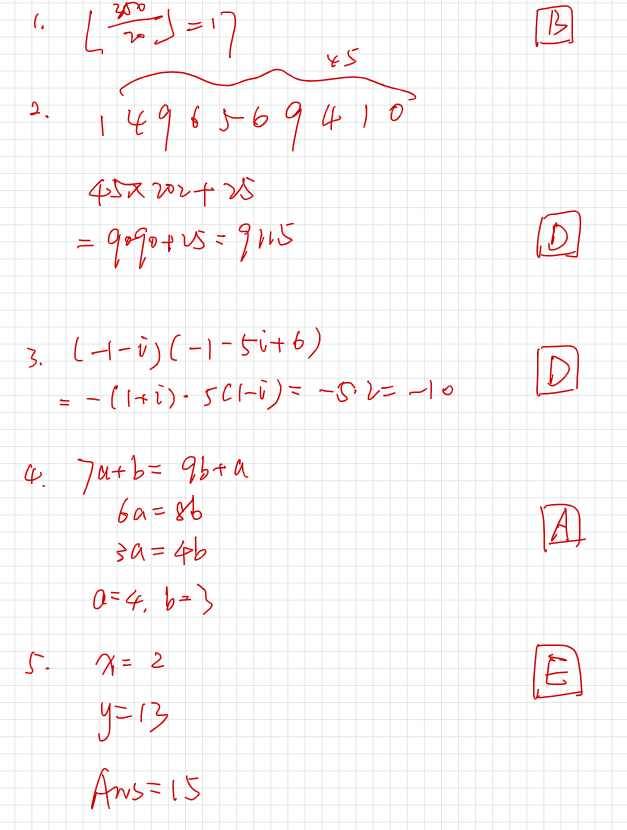 1. ⌊350/20⌋ = 17 B
45
2. 1 4 9 6 5 6 9 4 1 0
45×202+25
= 9090+25 = 9115 D
3. (-1-i)(-1-5i+6)
= -(1+i)·5(1-i) = -5·2 = -10 D
4. 7a+b = 9b+a
6a = 8b
3a = 4b A
a=4, b=3
5. x = 2 E
y=13
Ans=15